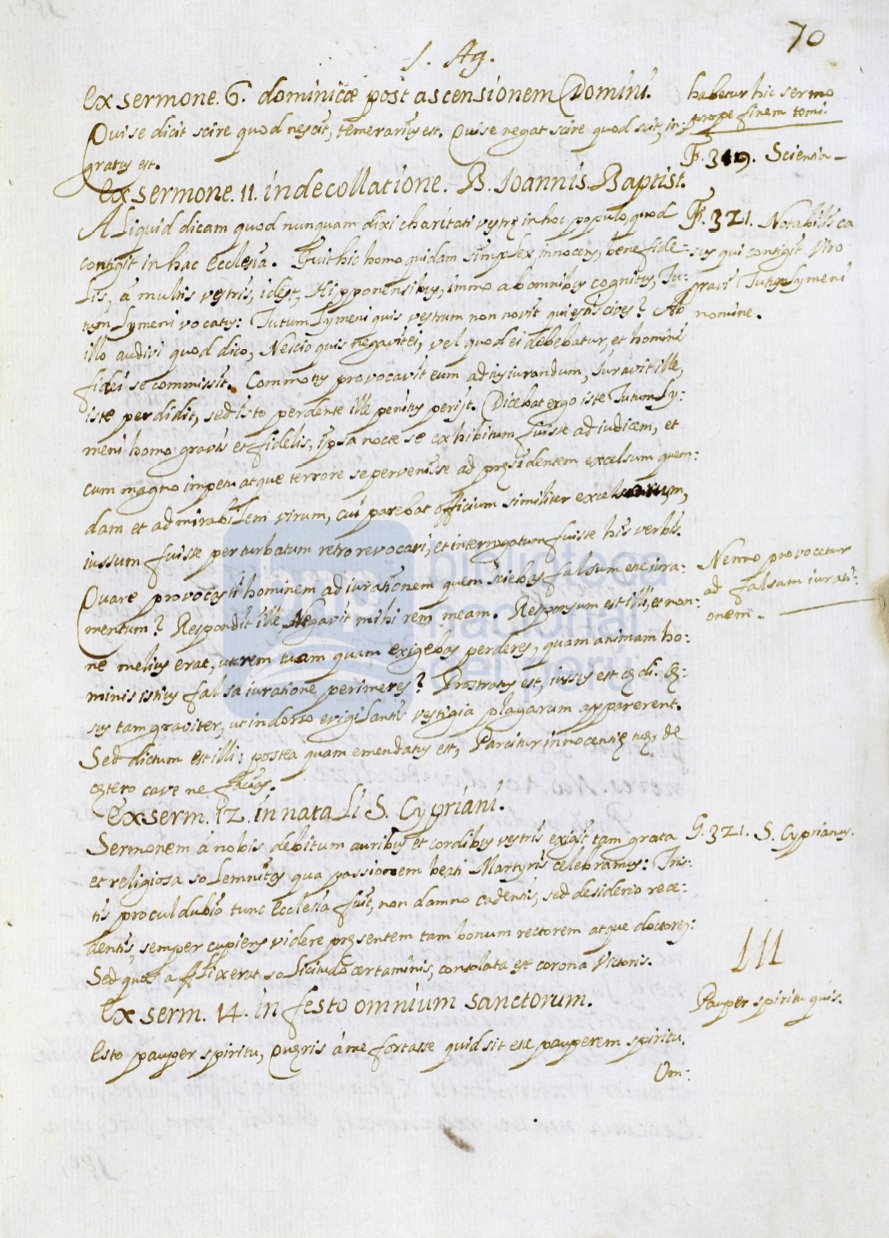 70
S. Ag.
Ex sermone. 6. dominicæ post ascensionem Domini.
habetur hic sermo
prope finem tomi.
Qui se dicit scire quod nescit, temerarius est. Qui se negat scire quod scit, in-
gratus est.
F. 319. Scientia
Ex sermone. 11. in decollatione. B. Joannis Baptist.
Aliquid dicam quod nunquam dixi charitati vestrę in hoc populo quod
F. 321. Notabilis ca
contigit in hac Ecclesia. Fuit hic homo quidam simplex innocens, bene fide-
sus qui contigit viro
lis, à multis vestris, idest, Hipponensibus, immo ab omnibus cognitus, Tu-
gravi Tutuslymeni
tuslymeni vocatus: Tutumlymeni quis vestrum non novit qui estis cives? Ab
nomine.
illo audivi quod dico, Nescio quis negavit ei, vel quod ei debebatur, et homini
fidei se commissit. Commotus provocavit eum ad iusiurandum, Juravit ille,
iste perdidit, sed isto perdente ille penitus perijt. Dicebat ergo iste Tutumly:
meni homo gravis et fidelis, ipsa nocte se exhibitum fuisse ad iudicem, et
cum magno impetu atque terrore se pervenisse ad pręsidentem excelsum quem:
dam et admirabilem virum, cui parebat officium similiter excelsorum,
iussum fuisse perturbatum retro revocari, et interrogatum fuisse his verbis.
Nemo provocetur
Quare provocasti hominem ad iurationem quem sciebas falsum esse iura-
ad falsam iurati-
mentum? Respondit ille Negavit mihi rem meam. Responsum est illi, et non-
onem.
ne melius erat, ut rem tuam quam exigebas perderes, quam animam ho-
minis istius falsa iuratione perimeres? Prostratus est, iussus est cędi. Cę-
sus tam graviter, ut in dorso evigilantis vestigia plagarum apparerent.
Sed dictum est illi: postea quam emendatus est, Parcitur innocentię tuę, de
cętero cave ne facias.
Ex serm. 12. in natali S. Cypriani.
Sermonem à nobis debitum auribus et cordibus vestris exigit tam grata
G. 321. S. Cyprianus.
et religiosa solemnitas qua passionem beati Martyris celebramus: Tris-
tis procul dubio tunc Ecclesia fuit, non damno cadentis, sed desiderio rece-
dentis, semper cupiens videre pręsentem tam bonum rectorem atque doctorem:
Sed quos afflixerat solicitudo certaminis, consolata est corona victoris.
111
Ex serm. 14. in festo omnium sanctorum.
Pauper spiritu quis.
Esto pauper spiritu, Quęris à me fortasse quid sit esse pauperem spiritu.
Om-
biblioteca
nacional
del perú